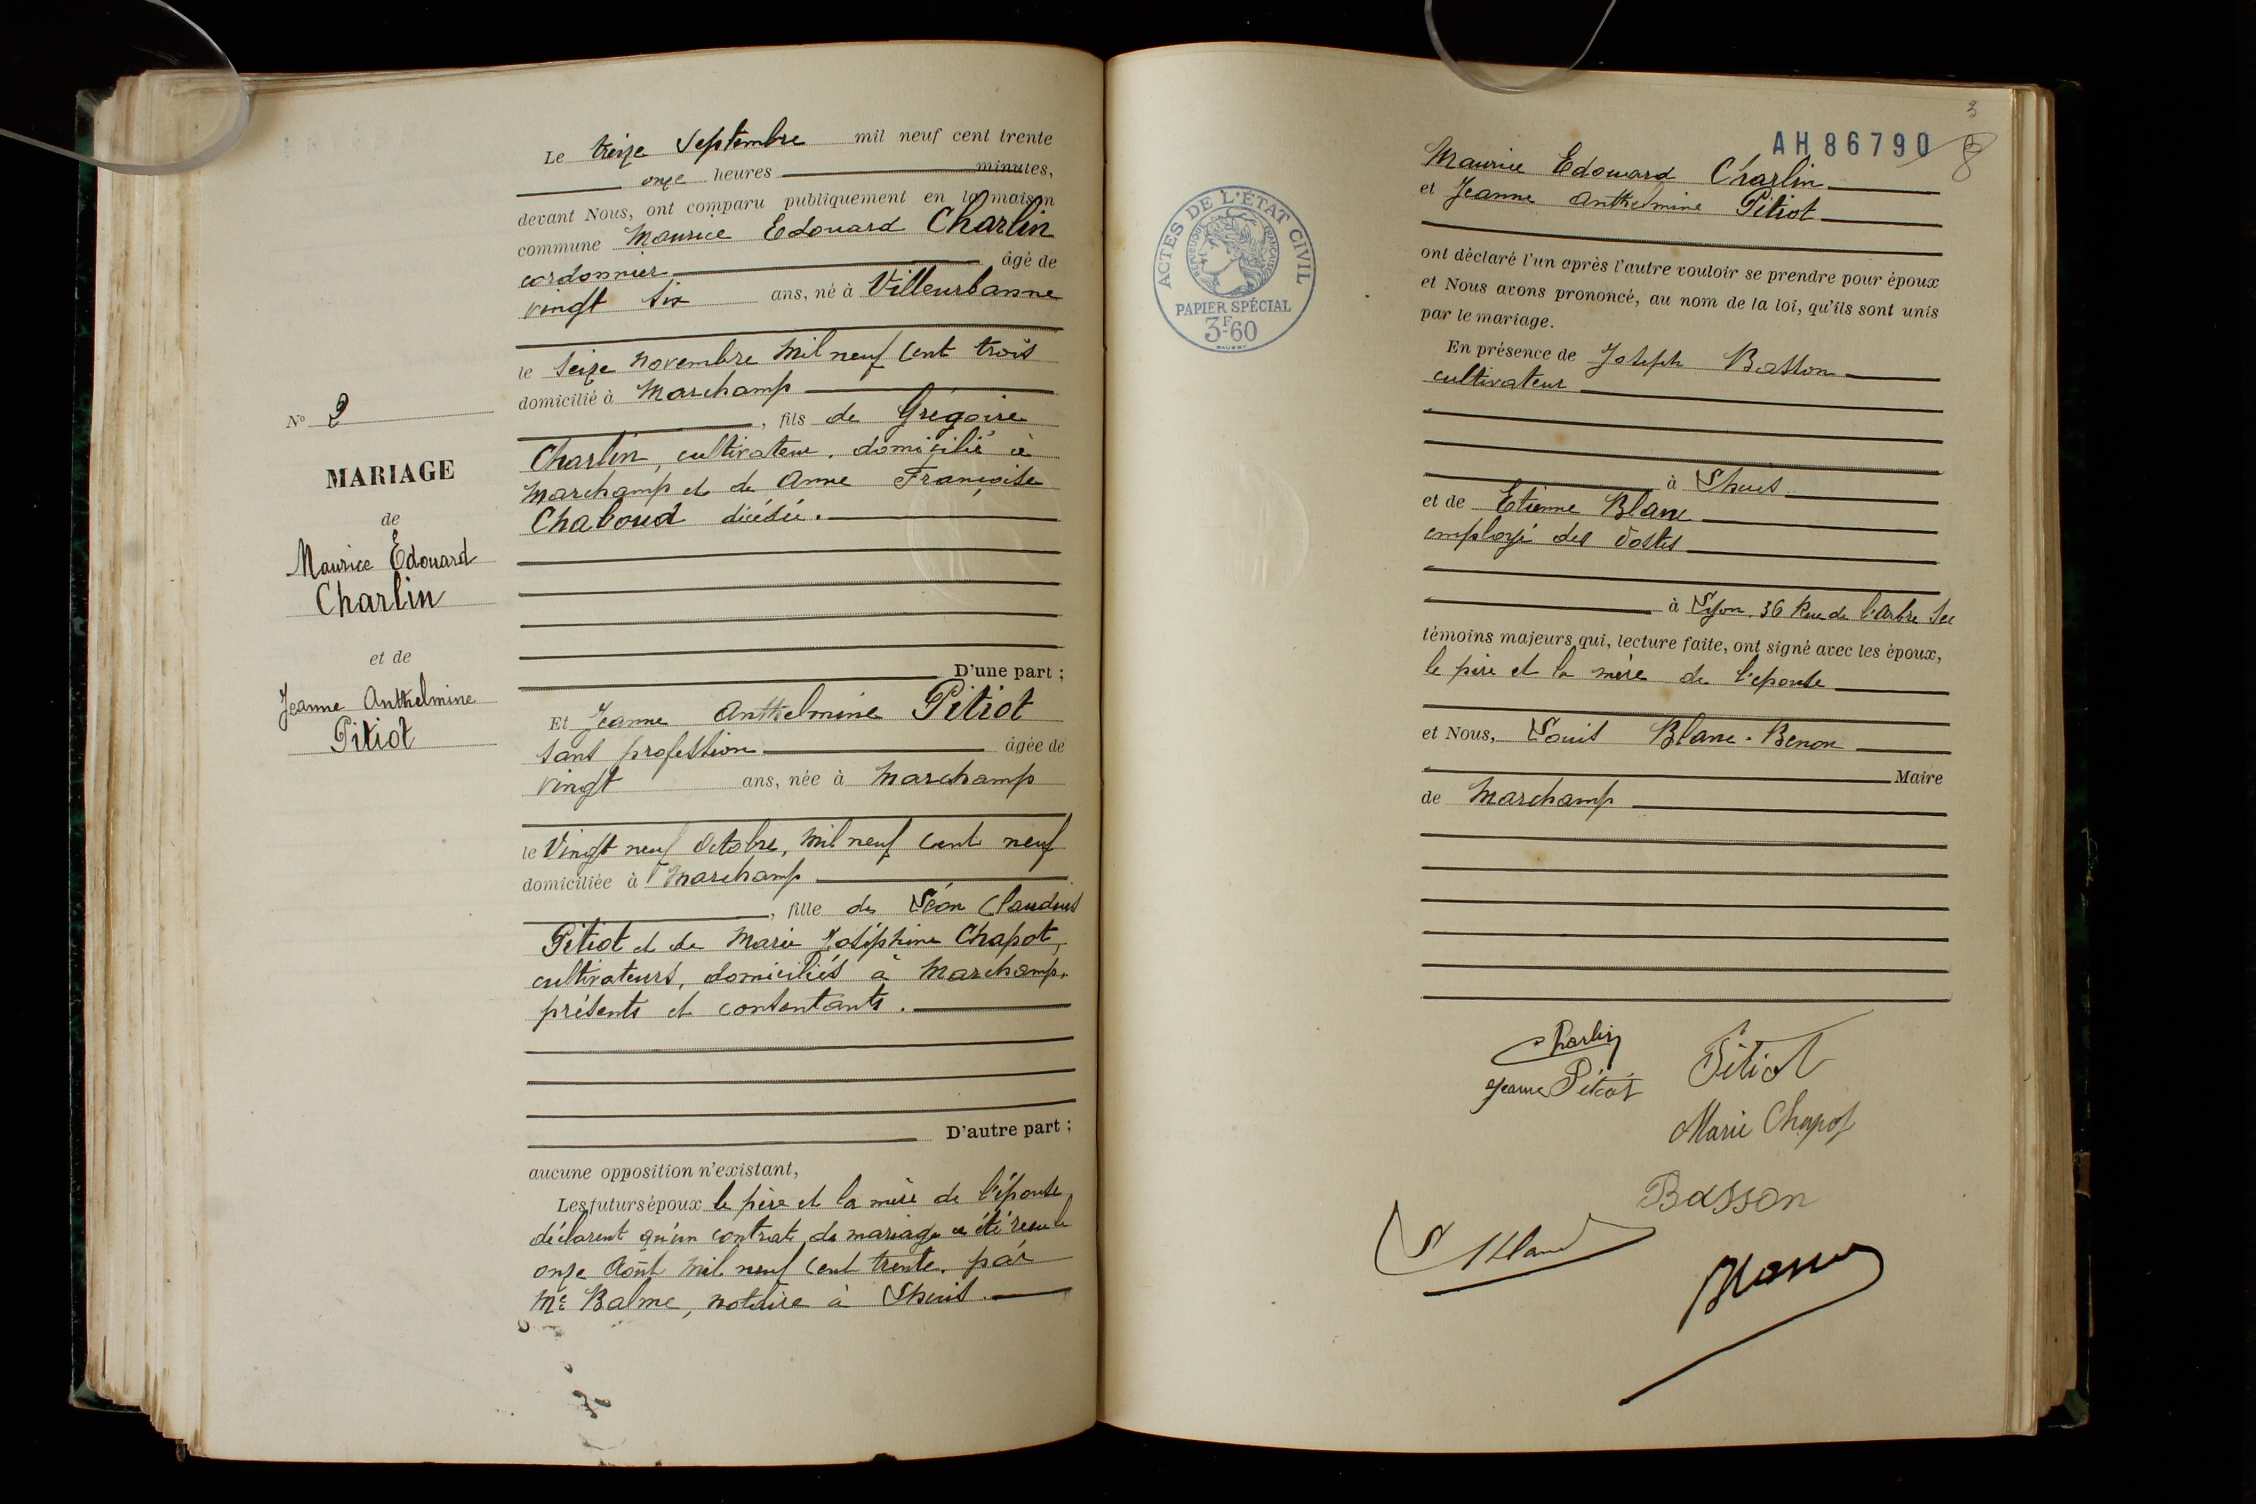 Le treize Septembre mil neuf cent trente
onze heures minutes,
devant Nous, ont comparu publiquement en la maison
commune Maurice Edouard Charlin
cordonnier âgé de
vingt six ans, né à Villeurbanne
le seize novembre mil neuf cent trois
domicilié à Marchamp
, fils de Grégoire
Charlin, cultivateur, domicilié à
Marchamp et de Anne Françoise
Chaboud décédée.
N° 2
MARIAGE
de
Maurice Edouard
Charlin
et de
Jeanne Anthelmine
Pitiot
D'une part ;
Et Jeanne Anthelmine Pitiot
sans profession âgée de
vingt ans, née à Marchamp
le Vingt neuf Octobre, mil neuf cent neuf
domiciliée à Marchamp
, fille de Léon Claudius
Pitiot et de Marie Joséphine Chapot,
cultivateurs, domiciliés à Marchamp,
présents et consentants.
D'autre part ;
aucune opposition n'existant,
Les futurs époux le père et la mère de l'épouse
déclarent qu'un contrat de mariage a été reçu le
onze Août mil neuf cent trente, par
Me Balme, notaire à Lhuis.
3
AH86790
8
ACTES DE L'ÉTAT CIVIL
RÉPUBLIQUE FRANÇAISE
PAPIER SPÉCIAL
3F60
Maurice Edouard Charlin
et Jeanne Anthelmine Pitiot
ont déclaré l'un après l'autre vouloir se prendre pour époux
et Nous avons prononcé, au nom de la loi, qu'ils sont unis
par le mariage.
En présence de Joseph Basson
cultivateur
à Lhuis
et de Etienne Blanc
employé des Postes
à Lyon, 36 Rue de l'Arbre Sec
témoins majeurs qui, lecture faite, ont signé avec les époux,
le père et la mère de l'épouse
et Nous, Louis Blanc-Benon
Maire
de Marchamp
Charlin
Pitiot
Jeanne Pitiot
Marie Chapot
Basson
Blanc